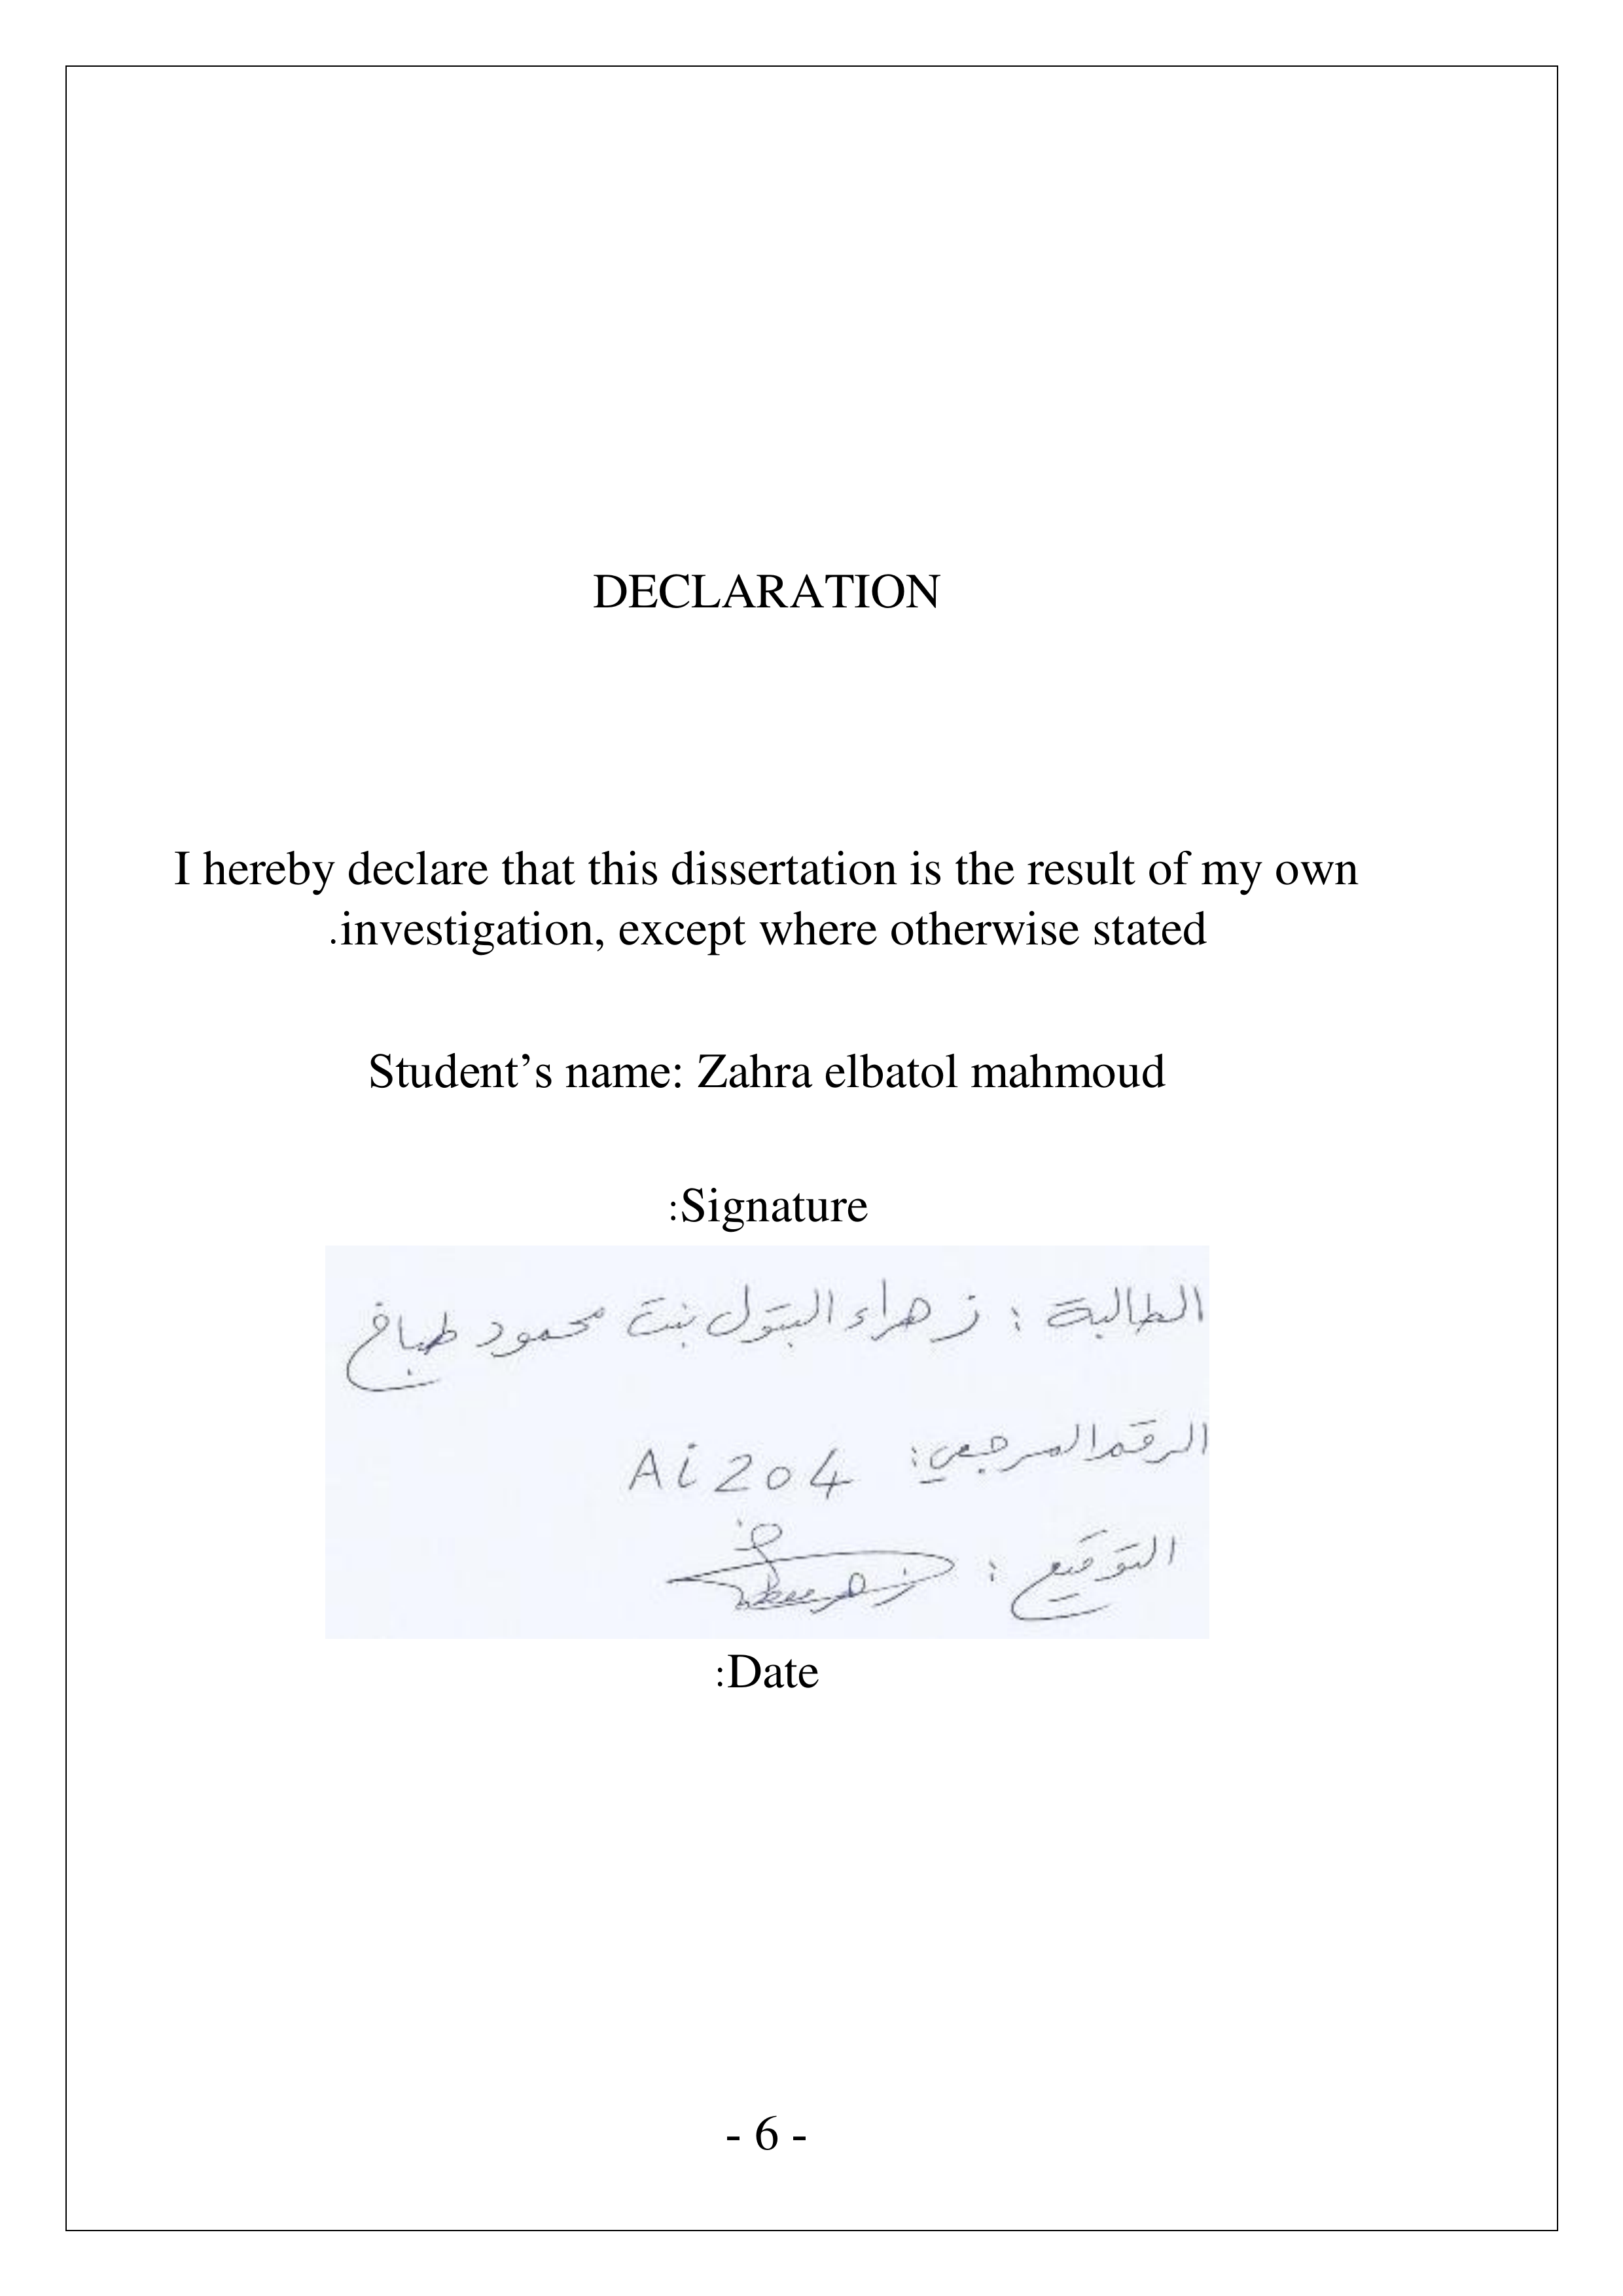 DECLARATION
I hereby declare that this dissertation is the result of my own
.investigation, except where otherwise stated
Student’s name: Zahra elbatol mahmoud
:Signature
الطالبة : زهراء البتول بنت محمود طباخ
الرقم المرجعي: Ai 204
التوقيع :
:Date
- 6 -